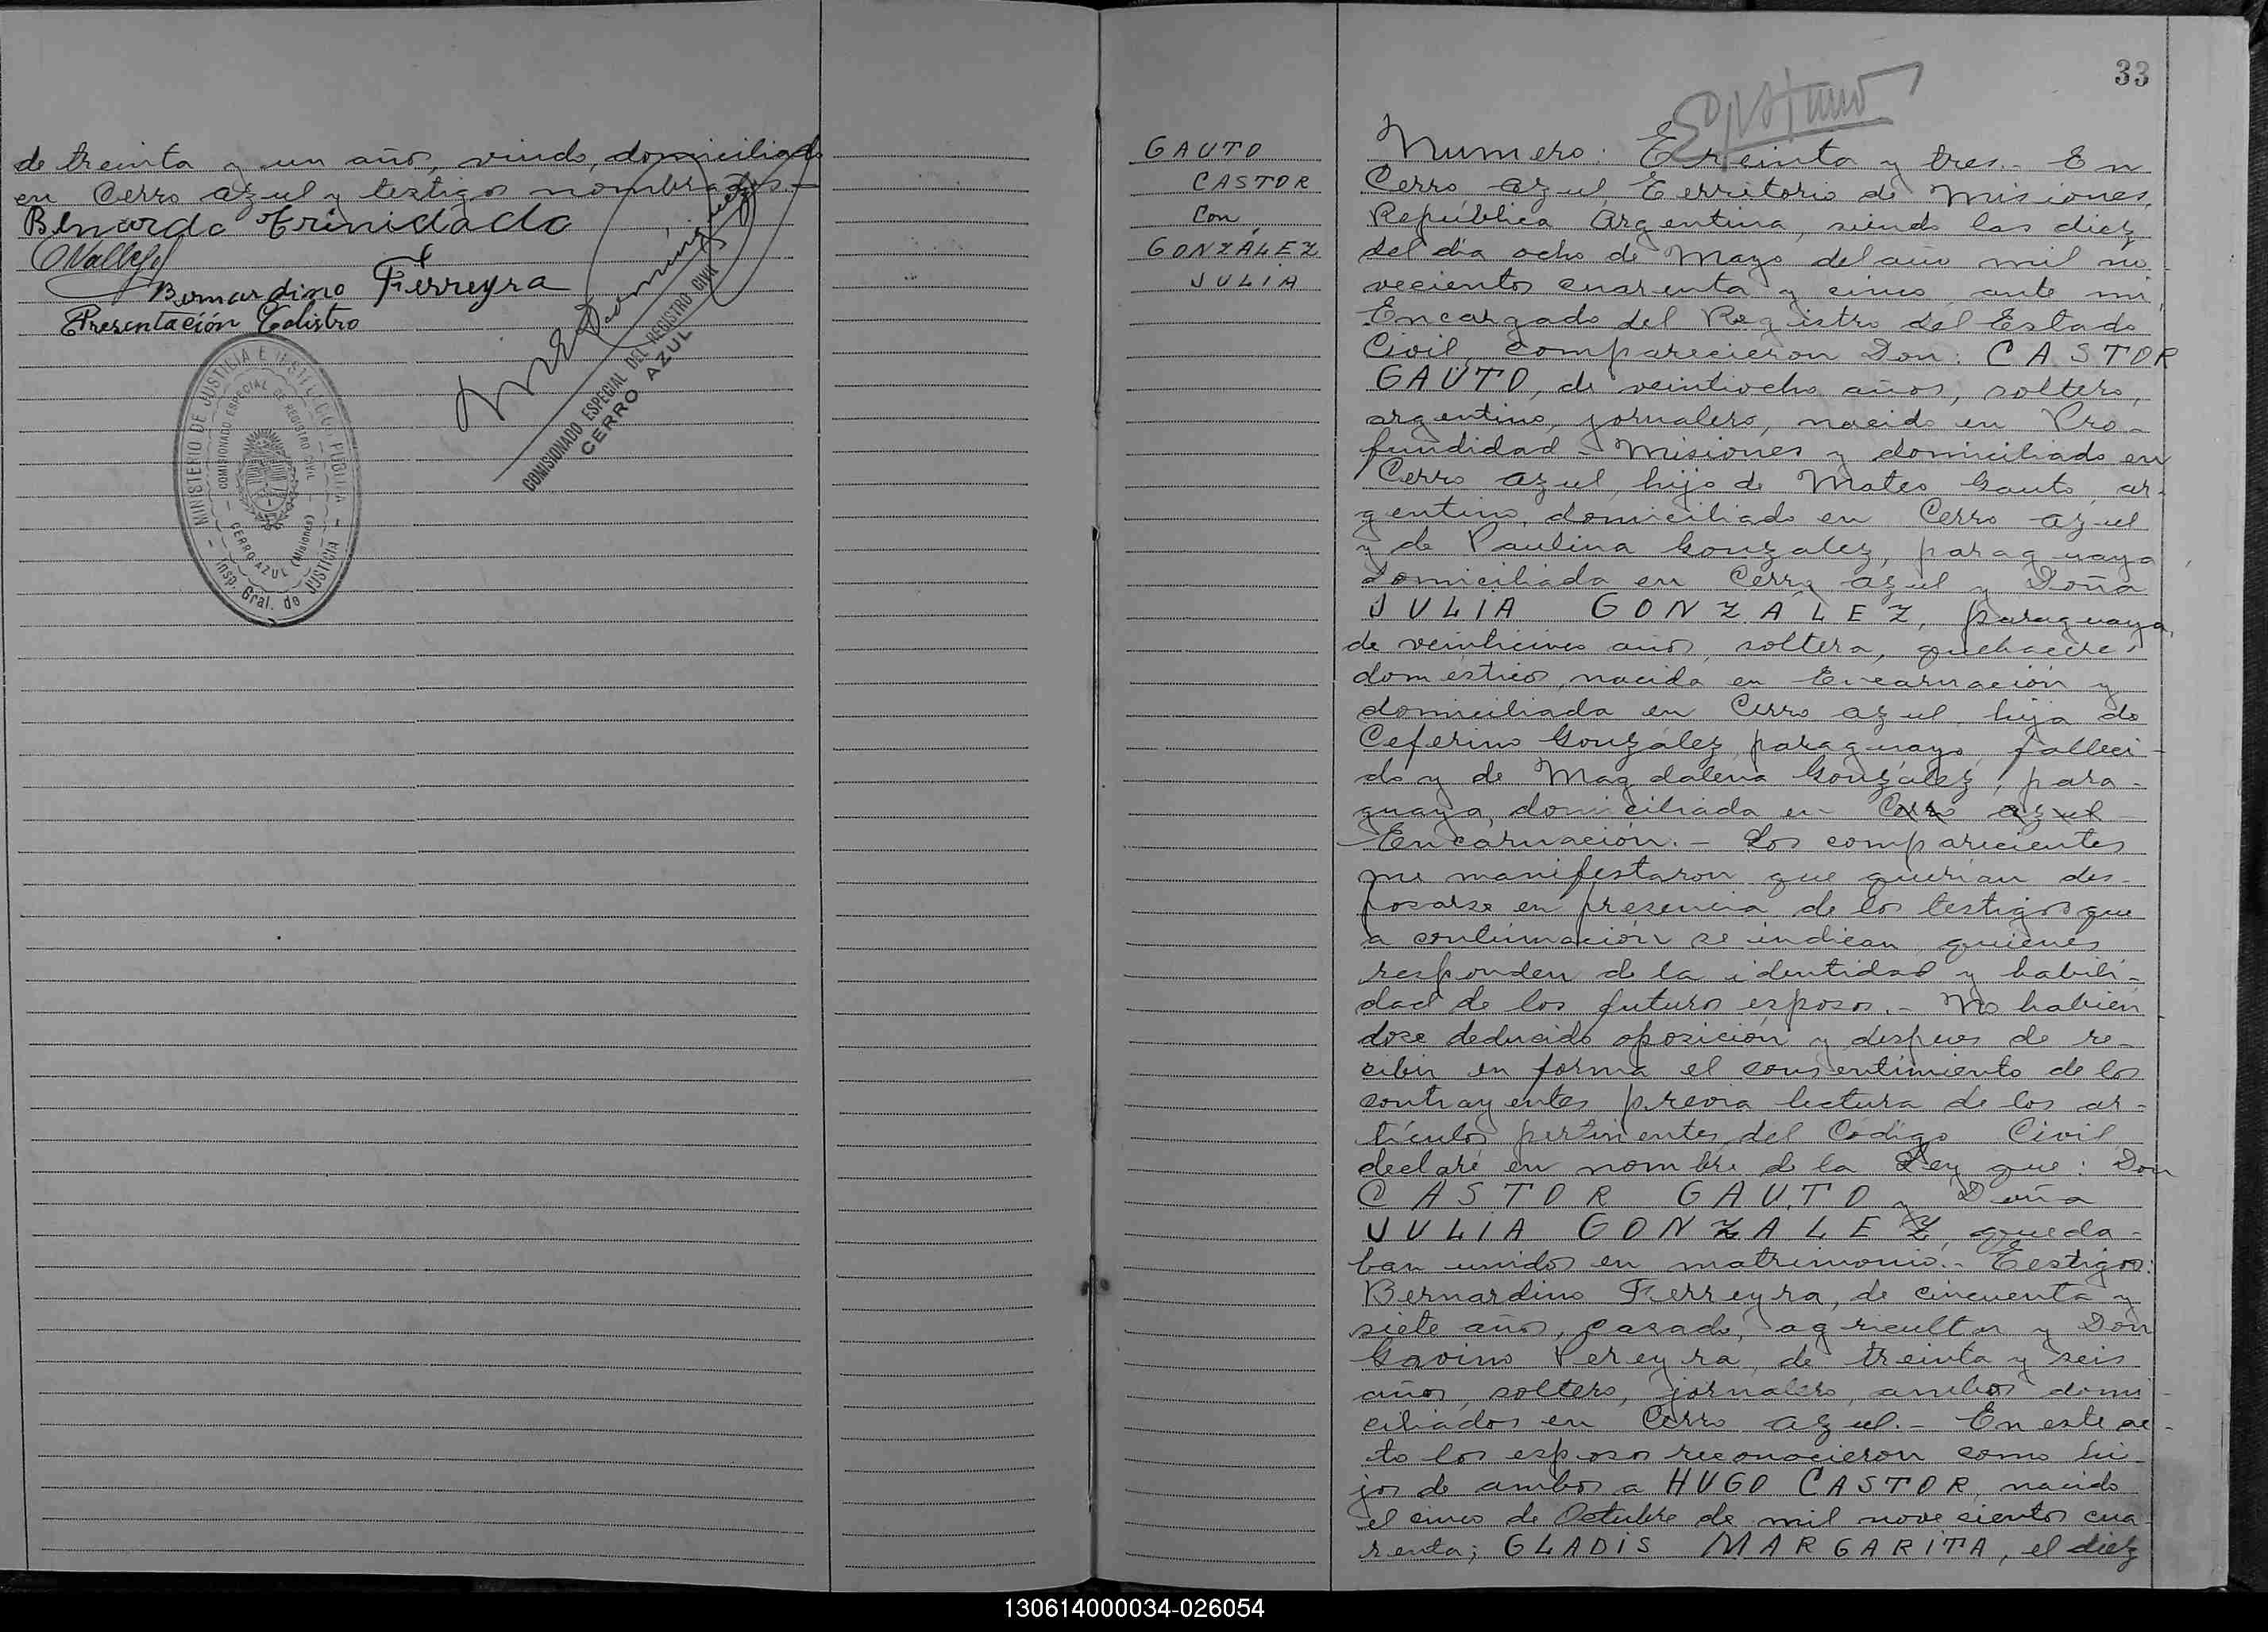 de treinta y un año, viudo, domiciliado
en Cerro azul y testigos nombrados.-
Bernardo Trinidado
CVallejo
Bernardino Fierreyra
Presentación Calistro
MINISTERIO DE JUSTICIA E PUBLICA
COMISIONADO ESPECIAL DE REGISTRO CIVIL
CERRO AZUL (Misiones)
Insp. Gral. de JUSTICIA
COMISIONADO ESPECIAL DEL REGISTRO CIVIL
CERRO AZUL
33
GAUTO
CASTOR
Con
GONZÁLEZ
JULIA
Numero: Treinta y tres.- En
Cerro azul, Territorio de Misiones,
República Argentina, siendo las diez
del día ocho de Mayo del año mil no-
vecientos cuarenta y cinco, ante mi,
Encargado del Registro del Estado
Civil, comparecieron Don: CASTOR
GAUTO, de veintiocho años, soltero,
argentino, jornalero, nacido en Pro-
fundidad - Misiones y domiciliado en
Cerro azul, hijo de Mateo Gauto, ar-
gentino, domiciliado en Cerro azul
y de Paulina Gonzalez, paraguaya
domiciliada en Cerro azul y Doña
JULIA GONZALEZ, paraguaya,
de veinticinco años, soltera, quehacere
domésticos, nacida en Encarnación y
domiciliada en Cerro azul, hija de
Ceferino González, paraguayo, falleci-
do y de Magdalena González, para-
guaya, domiciliada en Cerro azul
Encarnación.- Los comparecientes
me manifestaron que querian des-
posarse en presencia de los testigos que
a continuación se indican, quienes
responden de la identidad y habili-
dad de los futuros esposos.- No habien
dose deducido oposición y despues de re-
cibir en forma el consentimiento de los
contrayentes previa lectura de los ar-
tículos pertinentes del Código Civil
declaré en nombre de la Ley que: Don
CASTOR GAUTO y Doña
JULIA GONZALEZ, queda-
ban unidos en matrimonio.- Testigos:
Bernardino Fierreyra, de cincuenta y
siete años, casado, agricultor y Don
Gavino Pereyra, de treinta y seis
años, soltero, jornalero, ambos domi-
ciliados en Cerro azul.- En este ac-
to los esposos reconocieron como hi-
jos de ambos a HUGO CASTOR, nacido
el cinco de Octubre de mil novecientos cua
renta; GLADIS MARGARITA, el diez
130614000034-026054